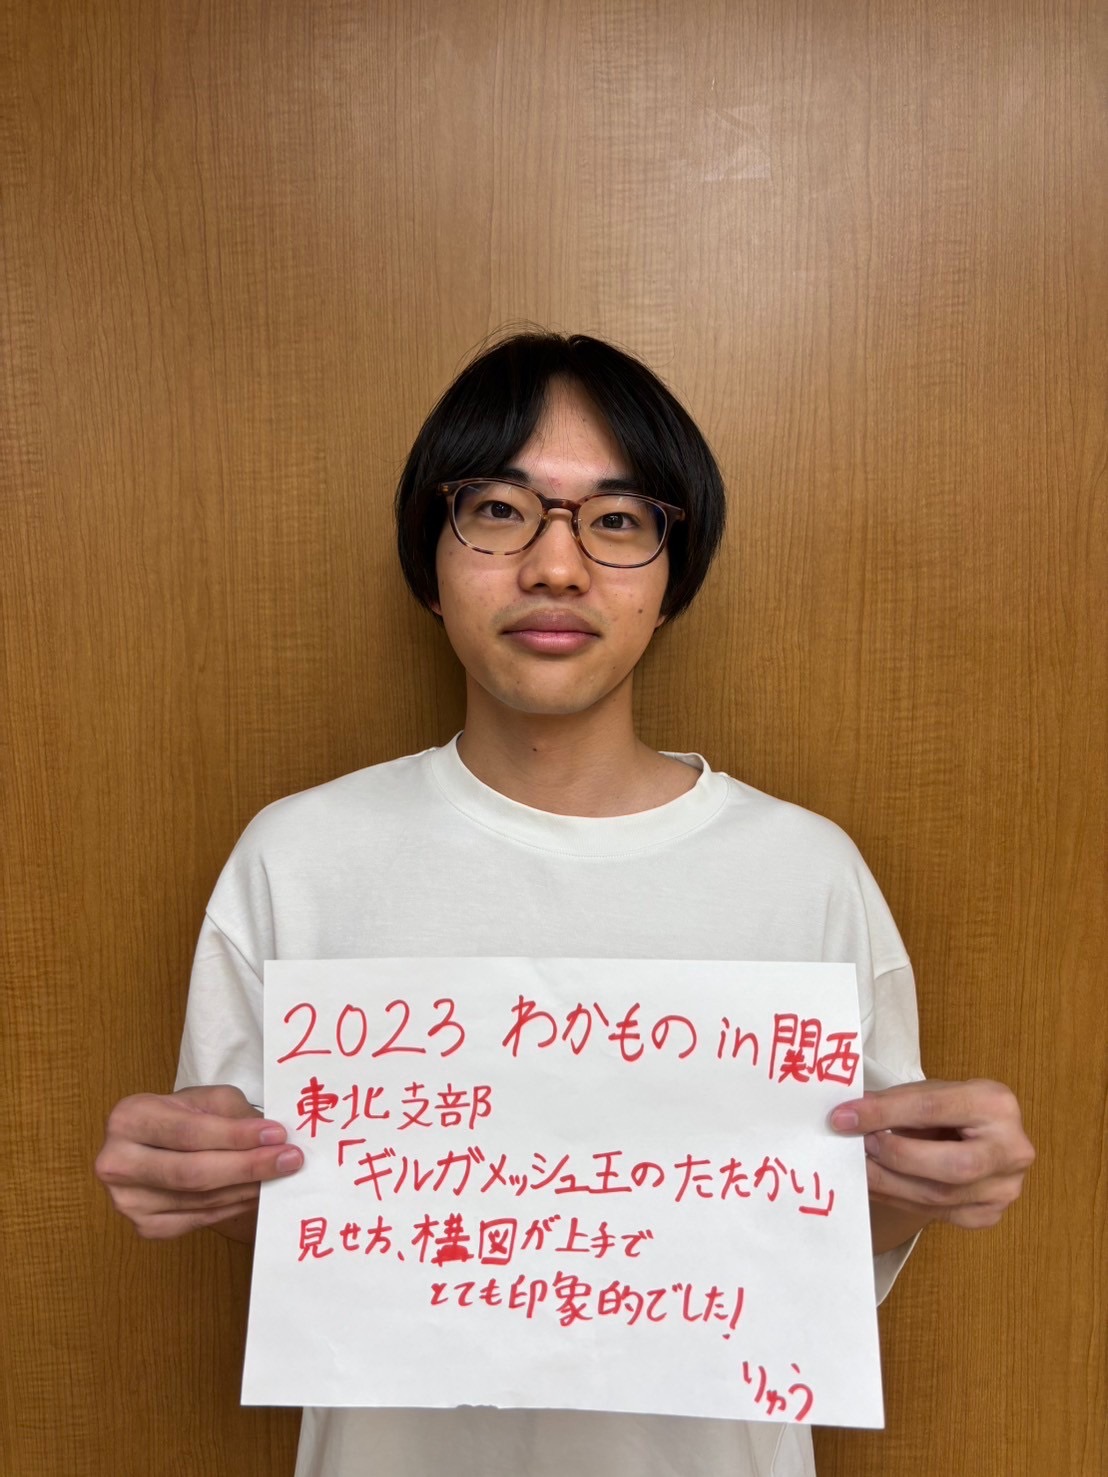 2023 わかもの in 関西
東北支部
「ギルガメッシュ王のたたかい」
見せ方、構図が上手で
とても印象的でした!
りゅう